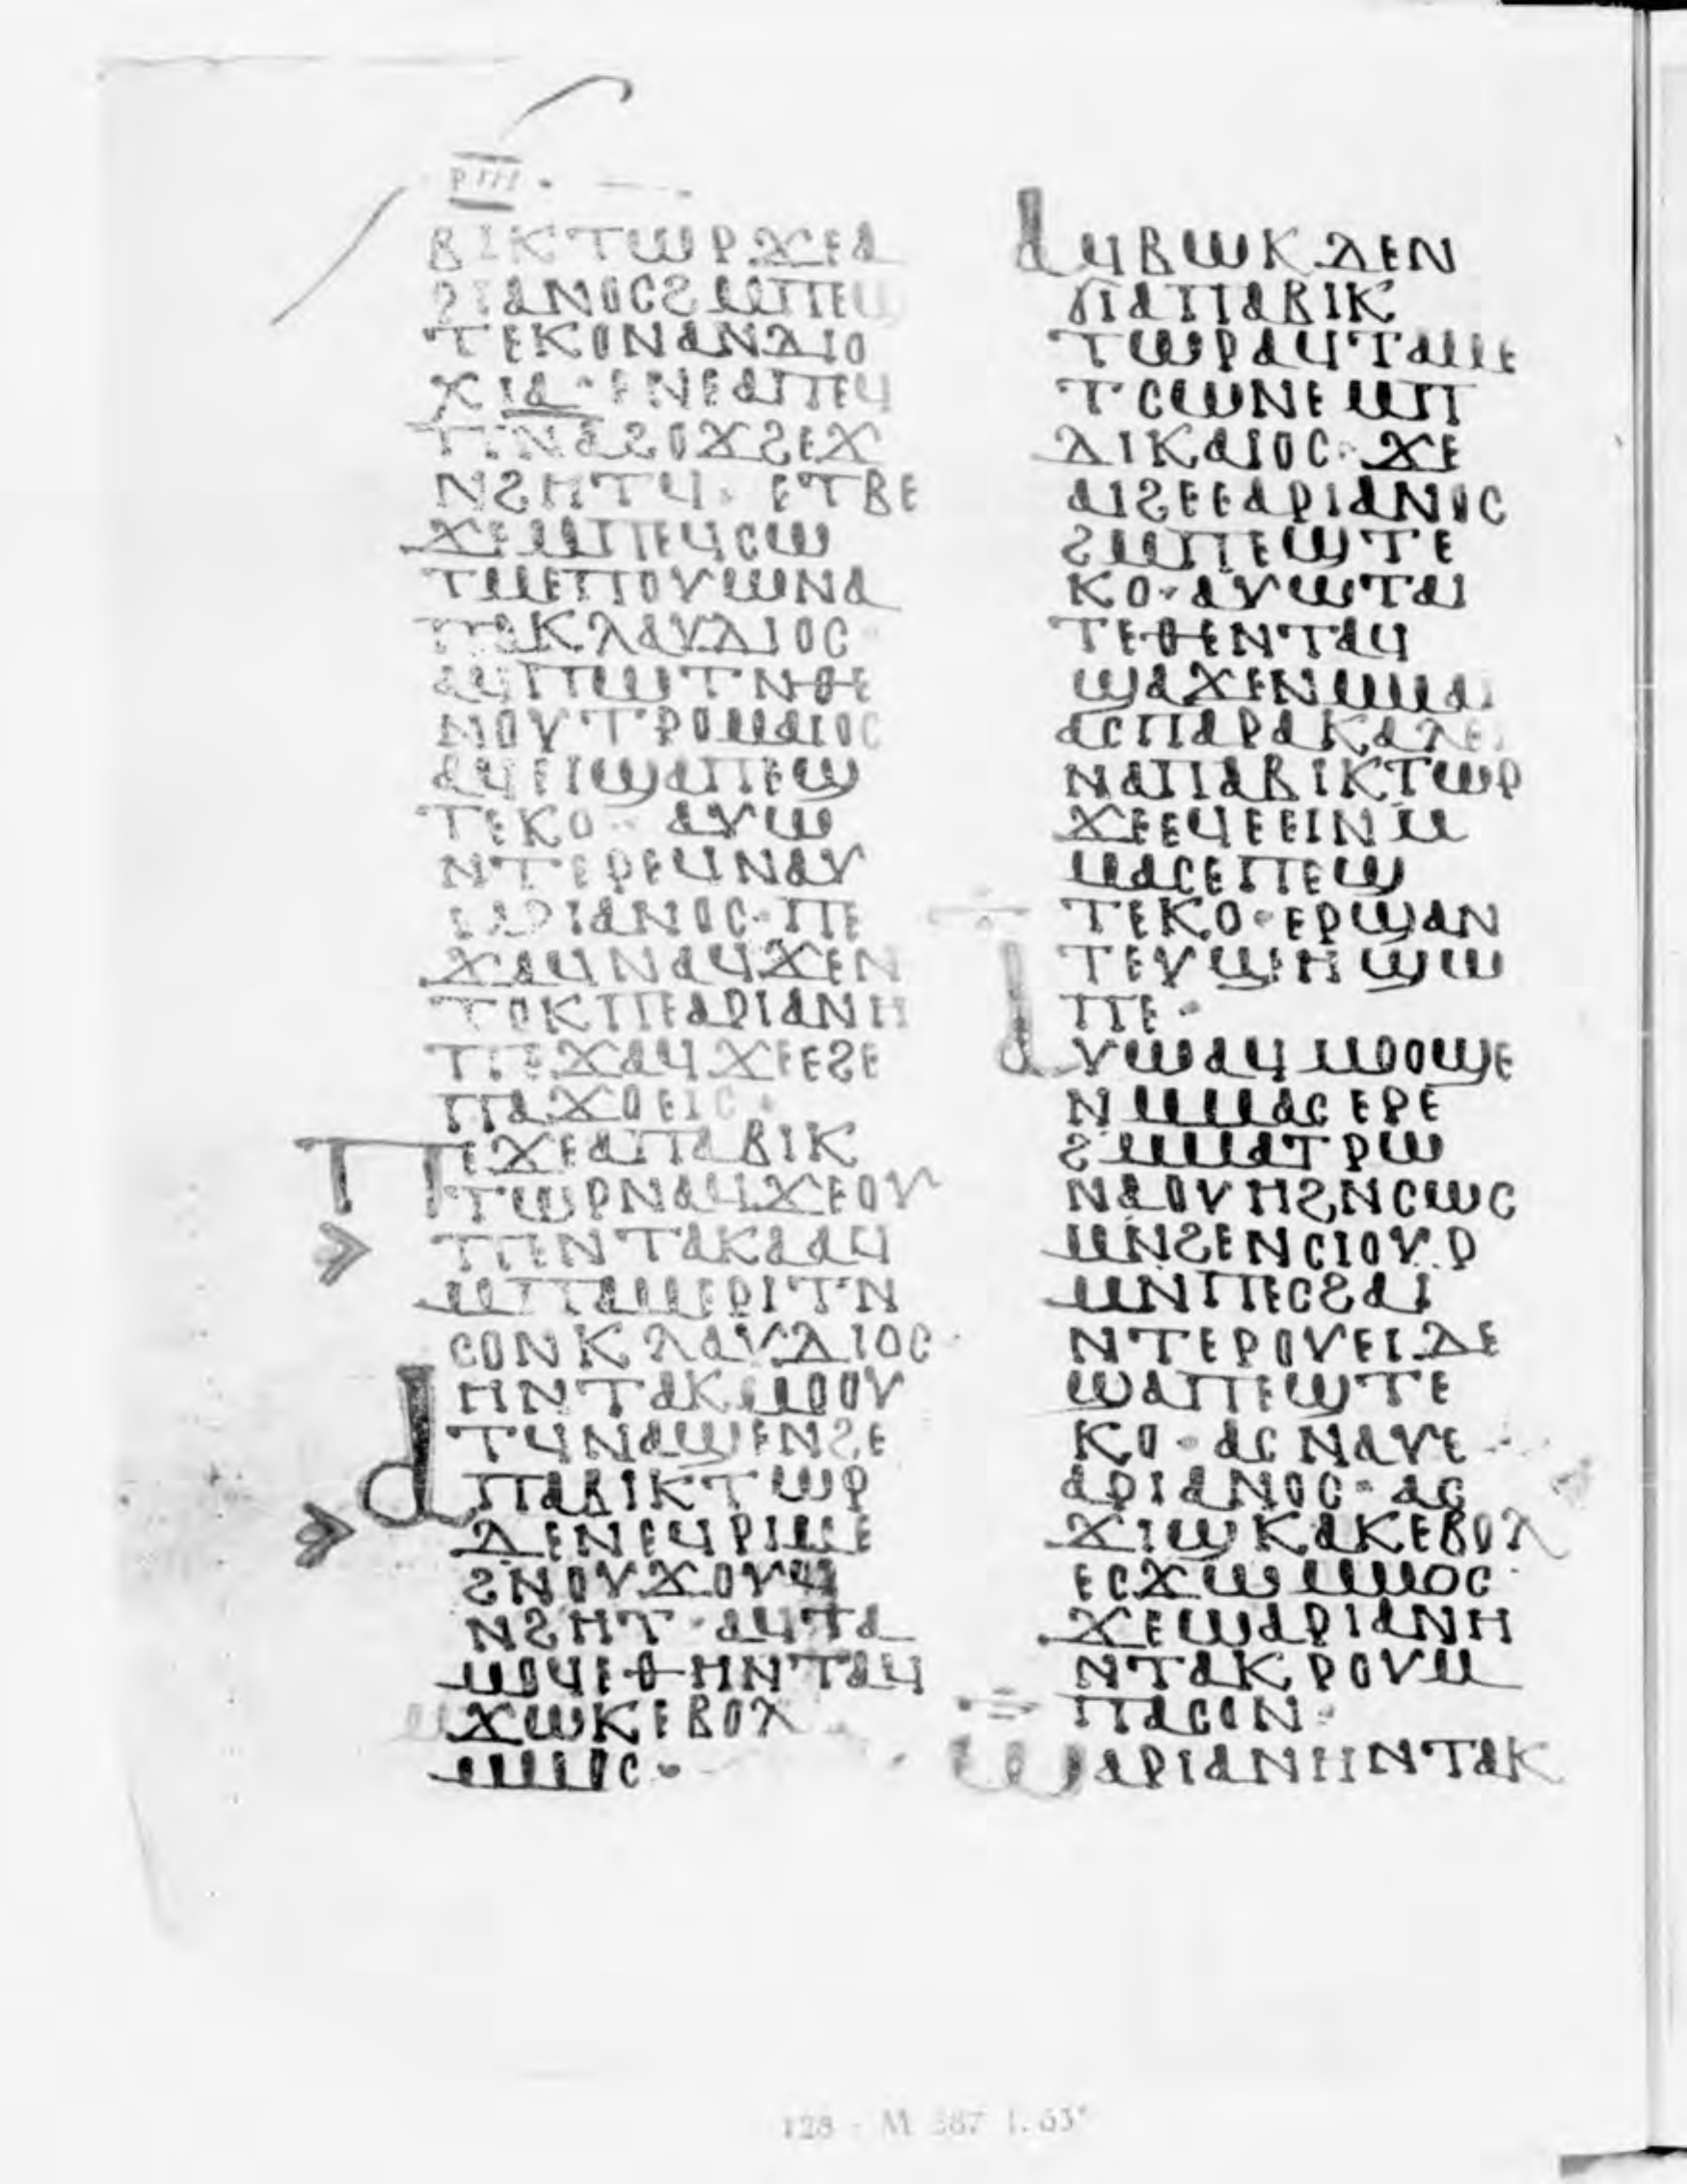 ⲣⲓⲏ
ⲃⲓⲕⲧⲱⲣϫⲉⲁ
ⲣⲓⲁⲛⲟⲥϩⲙⲡⲉϣ
ⲧⲉⲕⲟⲛⲁⲛⲇⲓⲟ
ⲭⲓⲁ· ⲉⲛⲉⲁⲡⲉϥ
ⲡⲛⲁϩⲟϫϩⲉϫ
ⲛϩⲏⲧϥ· ⲉⲧⲃⲉ
ϫⲉⲙⲡⲉϥⲥⲱ
ⲧⲙⲉⲡⲟⲩⲱⲛⲁ
ⲡⲁⲕⲗⲁⲩⲇⲓⲟⲥ
ⲁϥⲡⲱⲧⲛⲑⲉ
ⲛⲟⲩⲧⲣⲟⲙⲁⲓⲟⲥ
ⲁϥⲉⲓϣⲁⲡⲉϣ
ⲧⲉⲕⲟ· ⲁⲩⲱ
ⲛⲧⲉⲣⲉϥⲛⲁⲩ
ⲉⲁⲣⲓⲁⲛⲟⲥ·ⲡⲉ
ϫⲁϥⲛⲁϥϫⲉⲛ
ⲧⲟⲕⲡⲉⲁⲣⲓⲁⲛⲏ
ⲡⲉϫⲁϥϫⲉⲉϩⲉ
ⲡⲁϫⲟⲉⲓⲥ·
ⲡⲉϫⲉⲁⲡⲁⲃⲓⲕ
ⲧⲱⲣⲛⲁϥϫⲉⲟⲩ
ⲡⲉⲛⲧⲁⲕⲁⲁϥ
ⲙⲡⲁⲙⲉⲣⲓⲧⲛ
ⲥⲟⲛⲕⲗⲁⲩⲇⲓⲟⲥ·
ⲏⲛⲧⲁⲕⲙⲟⲟⲩ
ⲧϥⲛⲁϣⲉⲛϩⲉ
ⲁⲡⲁⲃⲓⲕⲧⲱⲣ
ⲇⲉⲛⲉϥⲣⲓⲙⲉ
ϩⲛⲟⲩϫⲟⲩϥ
ⲛϩⲏⲧ· ⲁϥⲧⲁ
ⲙⲟϥⲉⲑⲏⲛⲧⲁϥ
ϫⲱⲕⲉⲃⲟⲗ
ⲙⲙⲟⲥ·
ⲁϥⲃⲱⲕⲇⲉⲛ
ϭⲓⲁⲡⲁⲃⲓⲕ
ⲧⲱⲣⲁϥⲧⲁⲙⲉ
ⲧⲥⲱⲛⲉⲙⲡ
ⲇⲓⲕⲁⲓⲟⲥ· ϫⲉ
ⲁⲓϩⲉⲉⲁⲣⲓⲁⲛⲟⲥ
ϩⲙⲡⲉϣⲧⲉ
ⲕⲟ· ⲁⲩⲱⲧⲁⲓ
ⲧⲉⲑⲉⲛⲧⲁϥ
ϣⲁϫⲉⲛⲙⲙⲁⲓ
ⲁⲥⲡⲁⲣⲁⲕⲁⲗⲉⲓ
ⲛⲁⲡⲁⲃⲓⲕⲧⲱⲣ
ϫⲉⲉϥⲉⲉⲓⲛⲙ
ⲙⲁⲥⲉⲡⲉϣ
ⲧⲉⲕⲟ· ⲉⲣϣⲁⲛ
ⲧⲉⲩϣⲏϣⲱ
ⲡⲉ·
ⲁⲩⲱⲁϥⲙⲟⲟϣⲉ
ⲛⲙⲙⲁⲥⲉⲣⲉ
ϩⲙⲙⲁⲧⲣⲱ
ⲛⲁⲟⲩⲏϩⲛⲥⲱⲥ
ⲙⲛϩⲉⲛⲥⲓⲟⲩⲣ
ⲙⲛⲡⲉⲥϩⲁⲓ
ⲛⲧⲉⲣⲟⲩⲉⲓⲇⲉ
ϣⲁⲡⲉϣⲧⲉ
ⲕⲟ· ⲁⲥⲛⲁⲩⲉ
ⲁⲣⲓⲁⲛⲟⲥ· ⲁⲥ
ϫⲓϣⲕⲁⲕⲉⲃⲟⲗ
ⲉⲥϫⲱⲙⲙⲟⲥ
ϫⲉⲱⲁⲣⲓⲁⲛⲏ
ⲛⲧⲁⲕⲣⲟⲩⲙ
ⲡⲁⲥⲟⲛ·
ⲱⲁⲣⲓⲁⲛⲏⲛⲧⲁⲕ